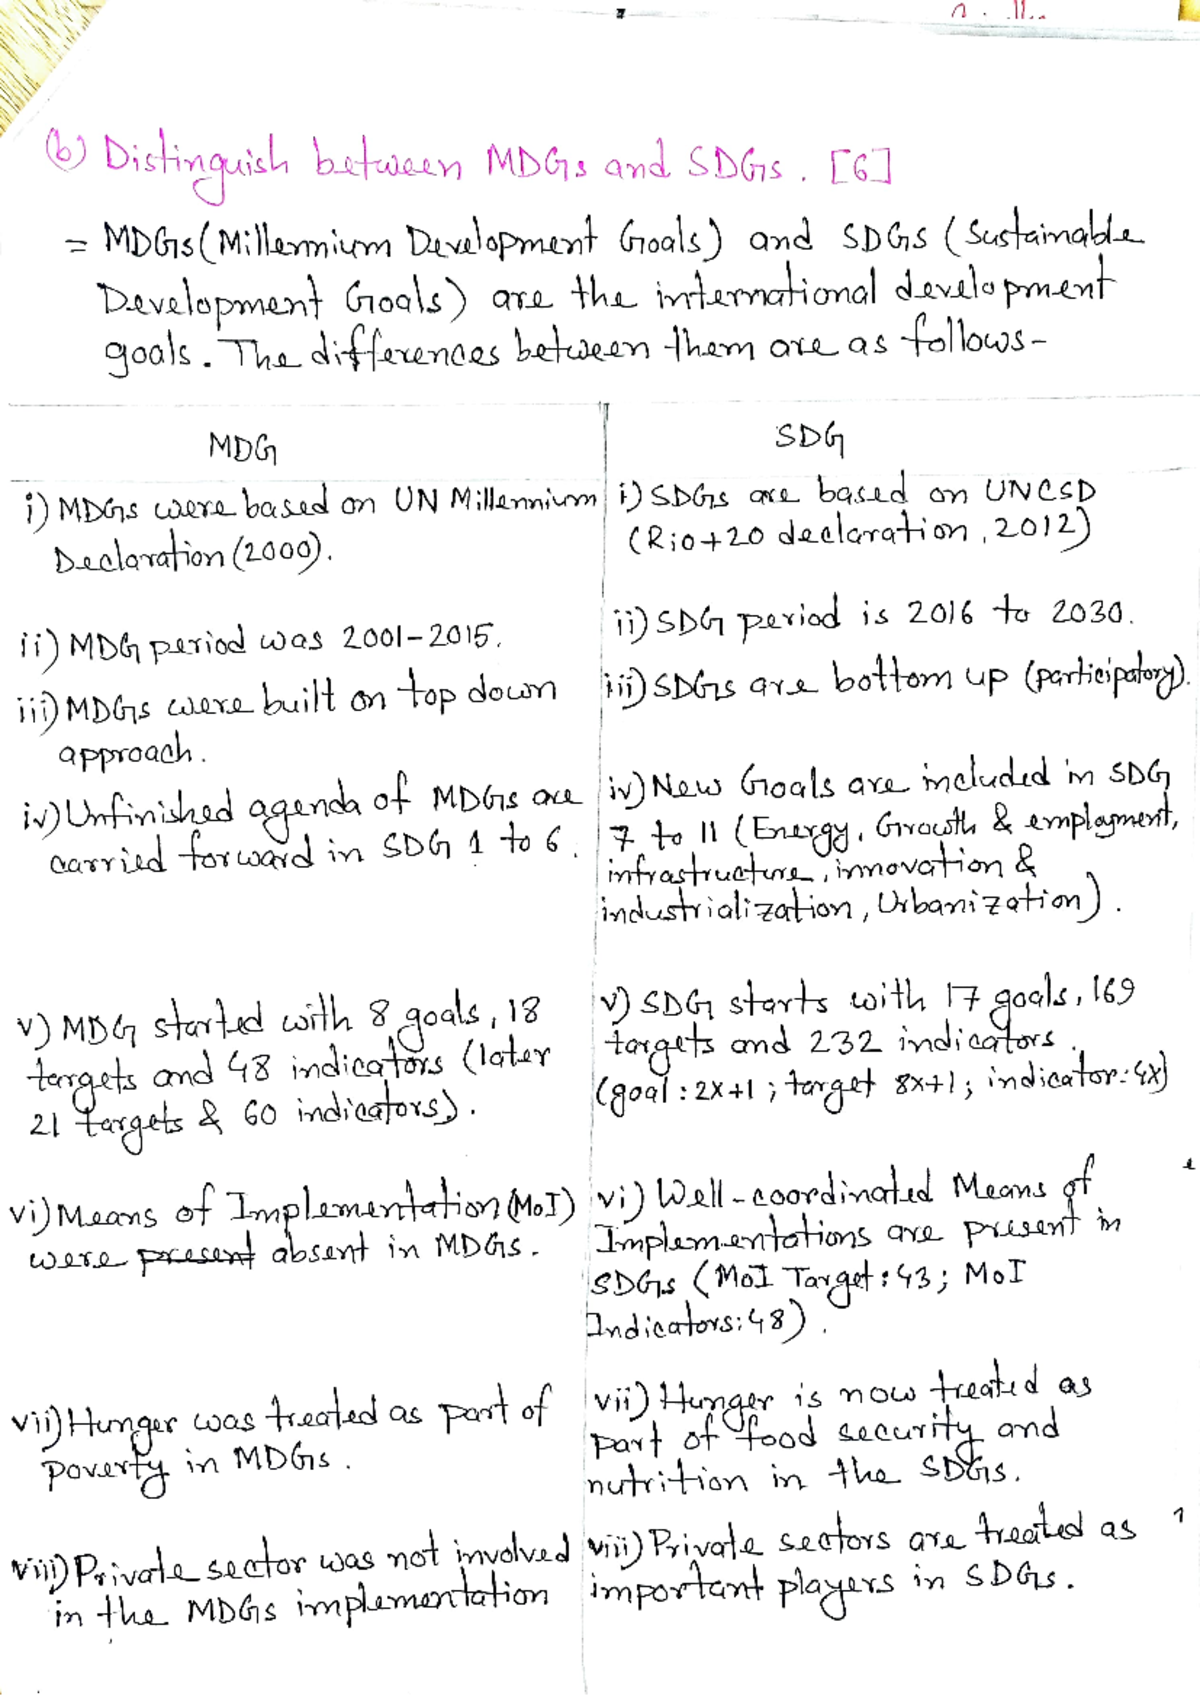 (b) Distinguish between MDGs and SDGs. [6]
= MDGs (Millennium Development Goals) and SDGs (Sustainable
Development Goals) are the international development
goals. The differences between them are as follows-
MDG
i) MDGs were based on UN Millennium
Declaration (2000).
ii) MDG period was 2001-2015.
iii) MDGs were built on top down
approach.
iv) Unfinished agenda of MDGs are
carried forward in SDG 1 to 6.
v) MDG started with 8 goals, 18
targets and 48 indicators (later
21 targets & 60 indicators).
vi) Means of Implementation (MoI)
were present absent in MDGs.
vii) Hunger was treated as part of
poverty in MDGs.
viii) Private sector was not involved
in the MDGs implementation
SDG
i) SDGs are based on UNCSD
(Rio+20 declaration, 2012)
ii) SDG period is 2016 to 2030.
iii) SDGs are bottom up (participatory).
iv) New Goals are included in SDG
7 to 11 (Energy, Growth & employment,
infrastructure, innovation &
industrialization, Urbanization).
v) SDG starts with 17 goals, 169
targets and 232 indicators.
(goal: 2x+1; target 8x+1; indicator: 4x)
vi) Well-coordinated Means of
Implementations are present in
SDGs (MoI Target: 43; MoI
Indicators: 48).
vii) Hunger is now treated as
part of food security and
nutrition in the SDGs.
viii) Private sectors are treated as
important players in SDGs.